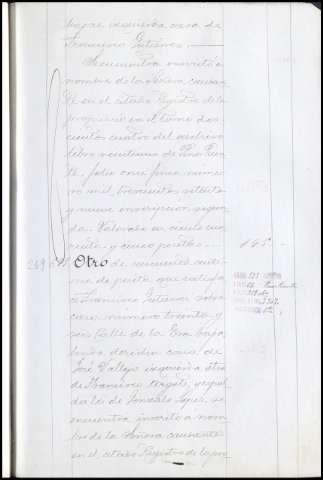 bajos izquierda casa de
Francisco Gutierrez.
Se encuentra inscrito a
nombre de la Señora causan-
te en el citado Registro de la
propiedad en el tomo dos-
cientos cuatro del archivo
libro veintiuno de
folio once finca núme-
ro mil trescientos setenta
y nueve inscripcion segun-
da. Valorado en ciento se-
senta y cinco pesetas.
165
Otro de cuarenta cénti-
mos de peseta que satisfa-
ce Francisco Gutierrez sobre
casa número treinta y
seis calle de la Era baja
linda derecha casa de
José Vallejo izquierda otra
de Francisco y espal-
da la de Gonzalo Lopez, se
encuentra inscrito a nom-
bre de la Señora causante
en el citado Registro de la pro-